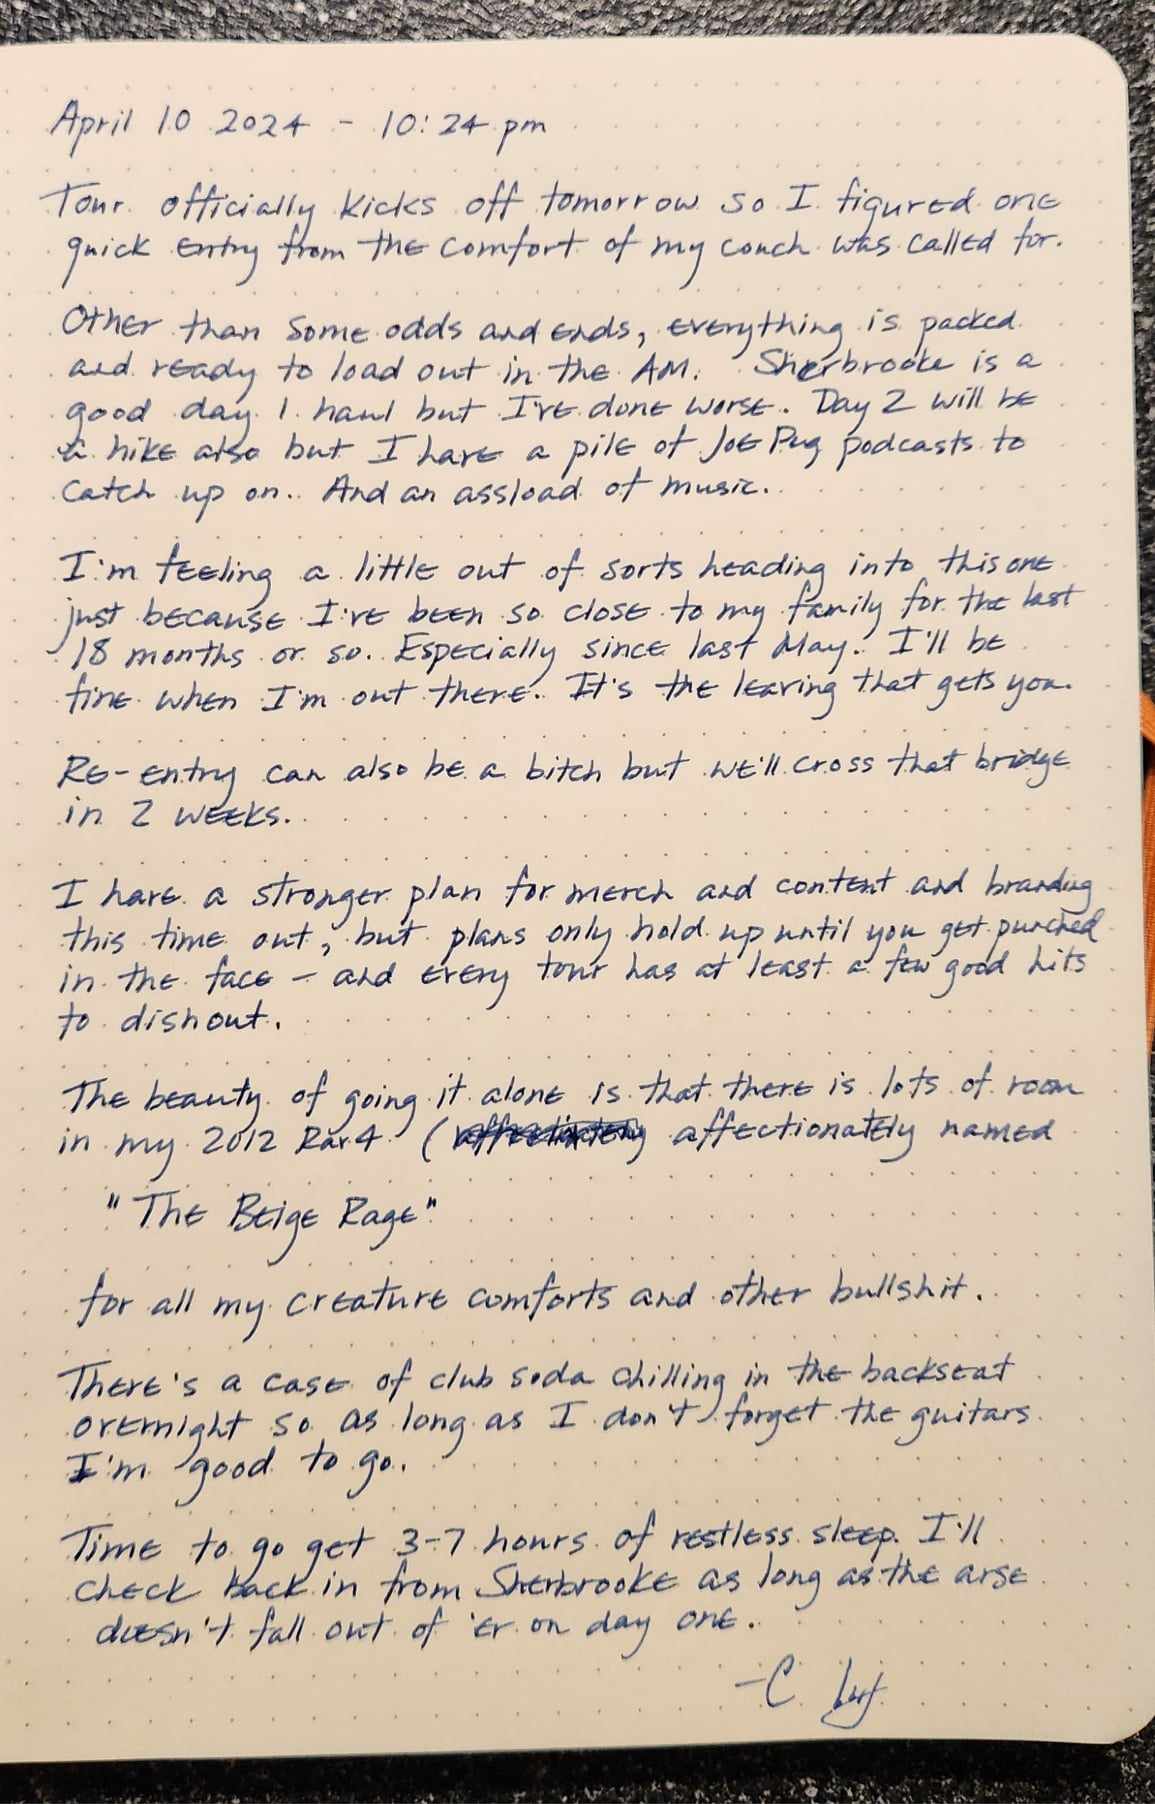 April 10 2024 - 10:24 pm
Tour officially kicks off tomorrow so I figured one
quick entry from the comfort of my couch was called for.
Other than some odds and ends, everything is packed
and ready to load out in the AM. Sherbrooke is a
good day 1 haul but I've done worse. Day 2 will be
a hike also but I have a pile of Joe Pug podcasts to
catch up on. And an assload of music.
I'm feeling a little out of sorts heading into this one
just because I've been so close to my family for the last
18 months or so. Especially since last May. I'll be
fine when I'm out there. It's the leaving that gets you.
Re-entry can also be a bitch but we'll cross that bridge
in 2 weeks.
I have a stronger plan for merch and content and branding
this time out, but plans only hold up until you get punched
in the face - and every tour has at least a few good hits
to dish out.
The beauty of going it alone is that there is lots of room
in my 2012 Rav4 (affectionately named
"The Beige Rage"
for all my creature comforts and other bullshit.
There's a case of club soda chilling in the backseat
overnight so as long as I don't forget the guitars
I'm good to go.
Time to go get 3-7 hours of restless sleep. I'll
check back in from Sherbrooke as long as the arse
doesn't fall out of 'er on day one.
-C